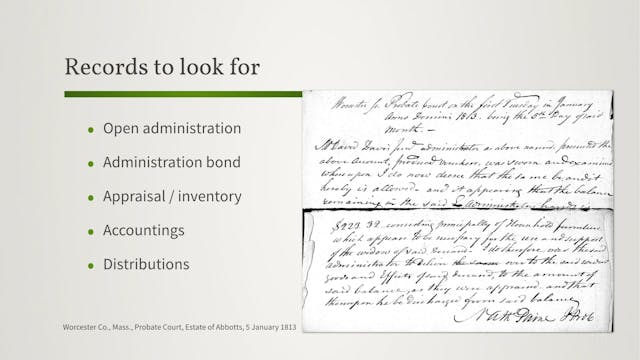 Records to look for
• Open administration
• Administration bond
• Appraisal / inventory
• Accountings
• Distributions
Worcester Co., Mass., Probate Court, Estate of Abbotts, 5 January 1813
Worcester Ss. Probate Court on the first Tuesday in January
Anno Domini 1813. being the 5th Day of said
month. —
Mr David Davis administrator as above named, presented the
above account, produced vouchers, was sworn and examined
whereupon I do now decree that the same be and it
hereby is allowed and it appearing that the balance
remaining in the said Administrator hands is
$223.32. consisting principally of Household furniture
which appears to be necessary for the use and support
of the widow of said deceased. I do therefore the said
administrator to deliver over to the said widow
goods and Effects of said deceased, to the amount of
said balance, as they were appraised, and that
thereupon he be discharged from said balance
Nath Paine J Prob